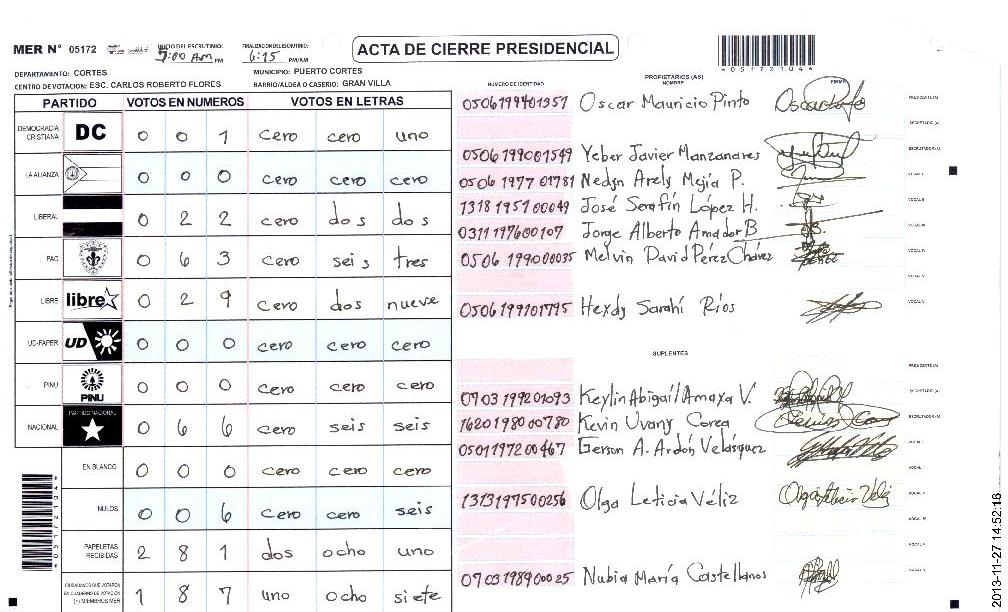 MER N° 05172 INICIO DEL ESCRUTINIO: 5:00 Am PM FINALIZACION DEL ESCRUTINIO: 6:15 PM/AM ACTA DE CIERRE PRESIDENCIAL
4051721044
DEPARTAMENTO: CORTES MUNICIPIO: PUERTO CORTES
CENTRO DE VOTACION: ESC. CARLOS ROBERTO FLORES BARRIO/ALDEA O CASERIO: GRAN VILLA
PARTIDO VOTOS EN NUMEROS VOTOS EN LETRAS
DEMOCRACIA CRISTIANA DC 0 0 1 cero cero uno
LA ALIANZA 0 0 0 cero cero cero
LIBERAL 0 2 2 cero dos dos
PAC 0 6 3 cero seis tres
LIBRE libre 0 2 9 cero dos nueve
UD-FAPER UD 0 0 0 cero cero cero
PINU PINU 0 0 0 cero cero cero
NACIONAL PARTIDO NACIONAL 0 6 6 cero seis seis
EN BLANCO 0 0 0 cero cero cero
NULOS 0 0 6 cero cero seis
PAPELETAS RECIBIDAS 2 8 1 dos ocho uno
CIUDADANOS QUE VOTARON EN CUADERNO DE VOTACION (+) MIEMBROS MER 1 8 7 uno ocho siete
NUMERO DE IDENTIDAD PROPIETARIOS (AS) NOMBRE FIRMA
0506199401351 Oscar Mauricio Pinto PRESIDENTE (A)
SECRETARIO (A)
0506199001549 Yeber Javier Manzanares ESCRUTADOR (A)
0506197701781 Nedyn Arely Mejía P. VOCAL I
1318195100049 José Serafín López H. VOCAL II
0311197600107 Jorge Alberto Amador B VOCAL III
0506199000035 Melvin David Pérez Chávez VOCAL IV
VOCAL V
0506199101795 Hexdy Sarahí Ríos
SUPLENTES
PRESIDENTE (A)
0703199201093 Keylin Abigail Amaya V. SECRETARIO (A)
1620198000780 Kevin Uvany Corea ESCRUTADOR (A)
0501197200467 Gerson A. Ardón Velásquez VOCAL I
1313197500256 Olga Leticia Véliz
0703198900025 Nubia María Castellanos
2013-11-27 14:52:16